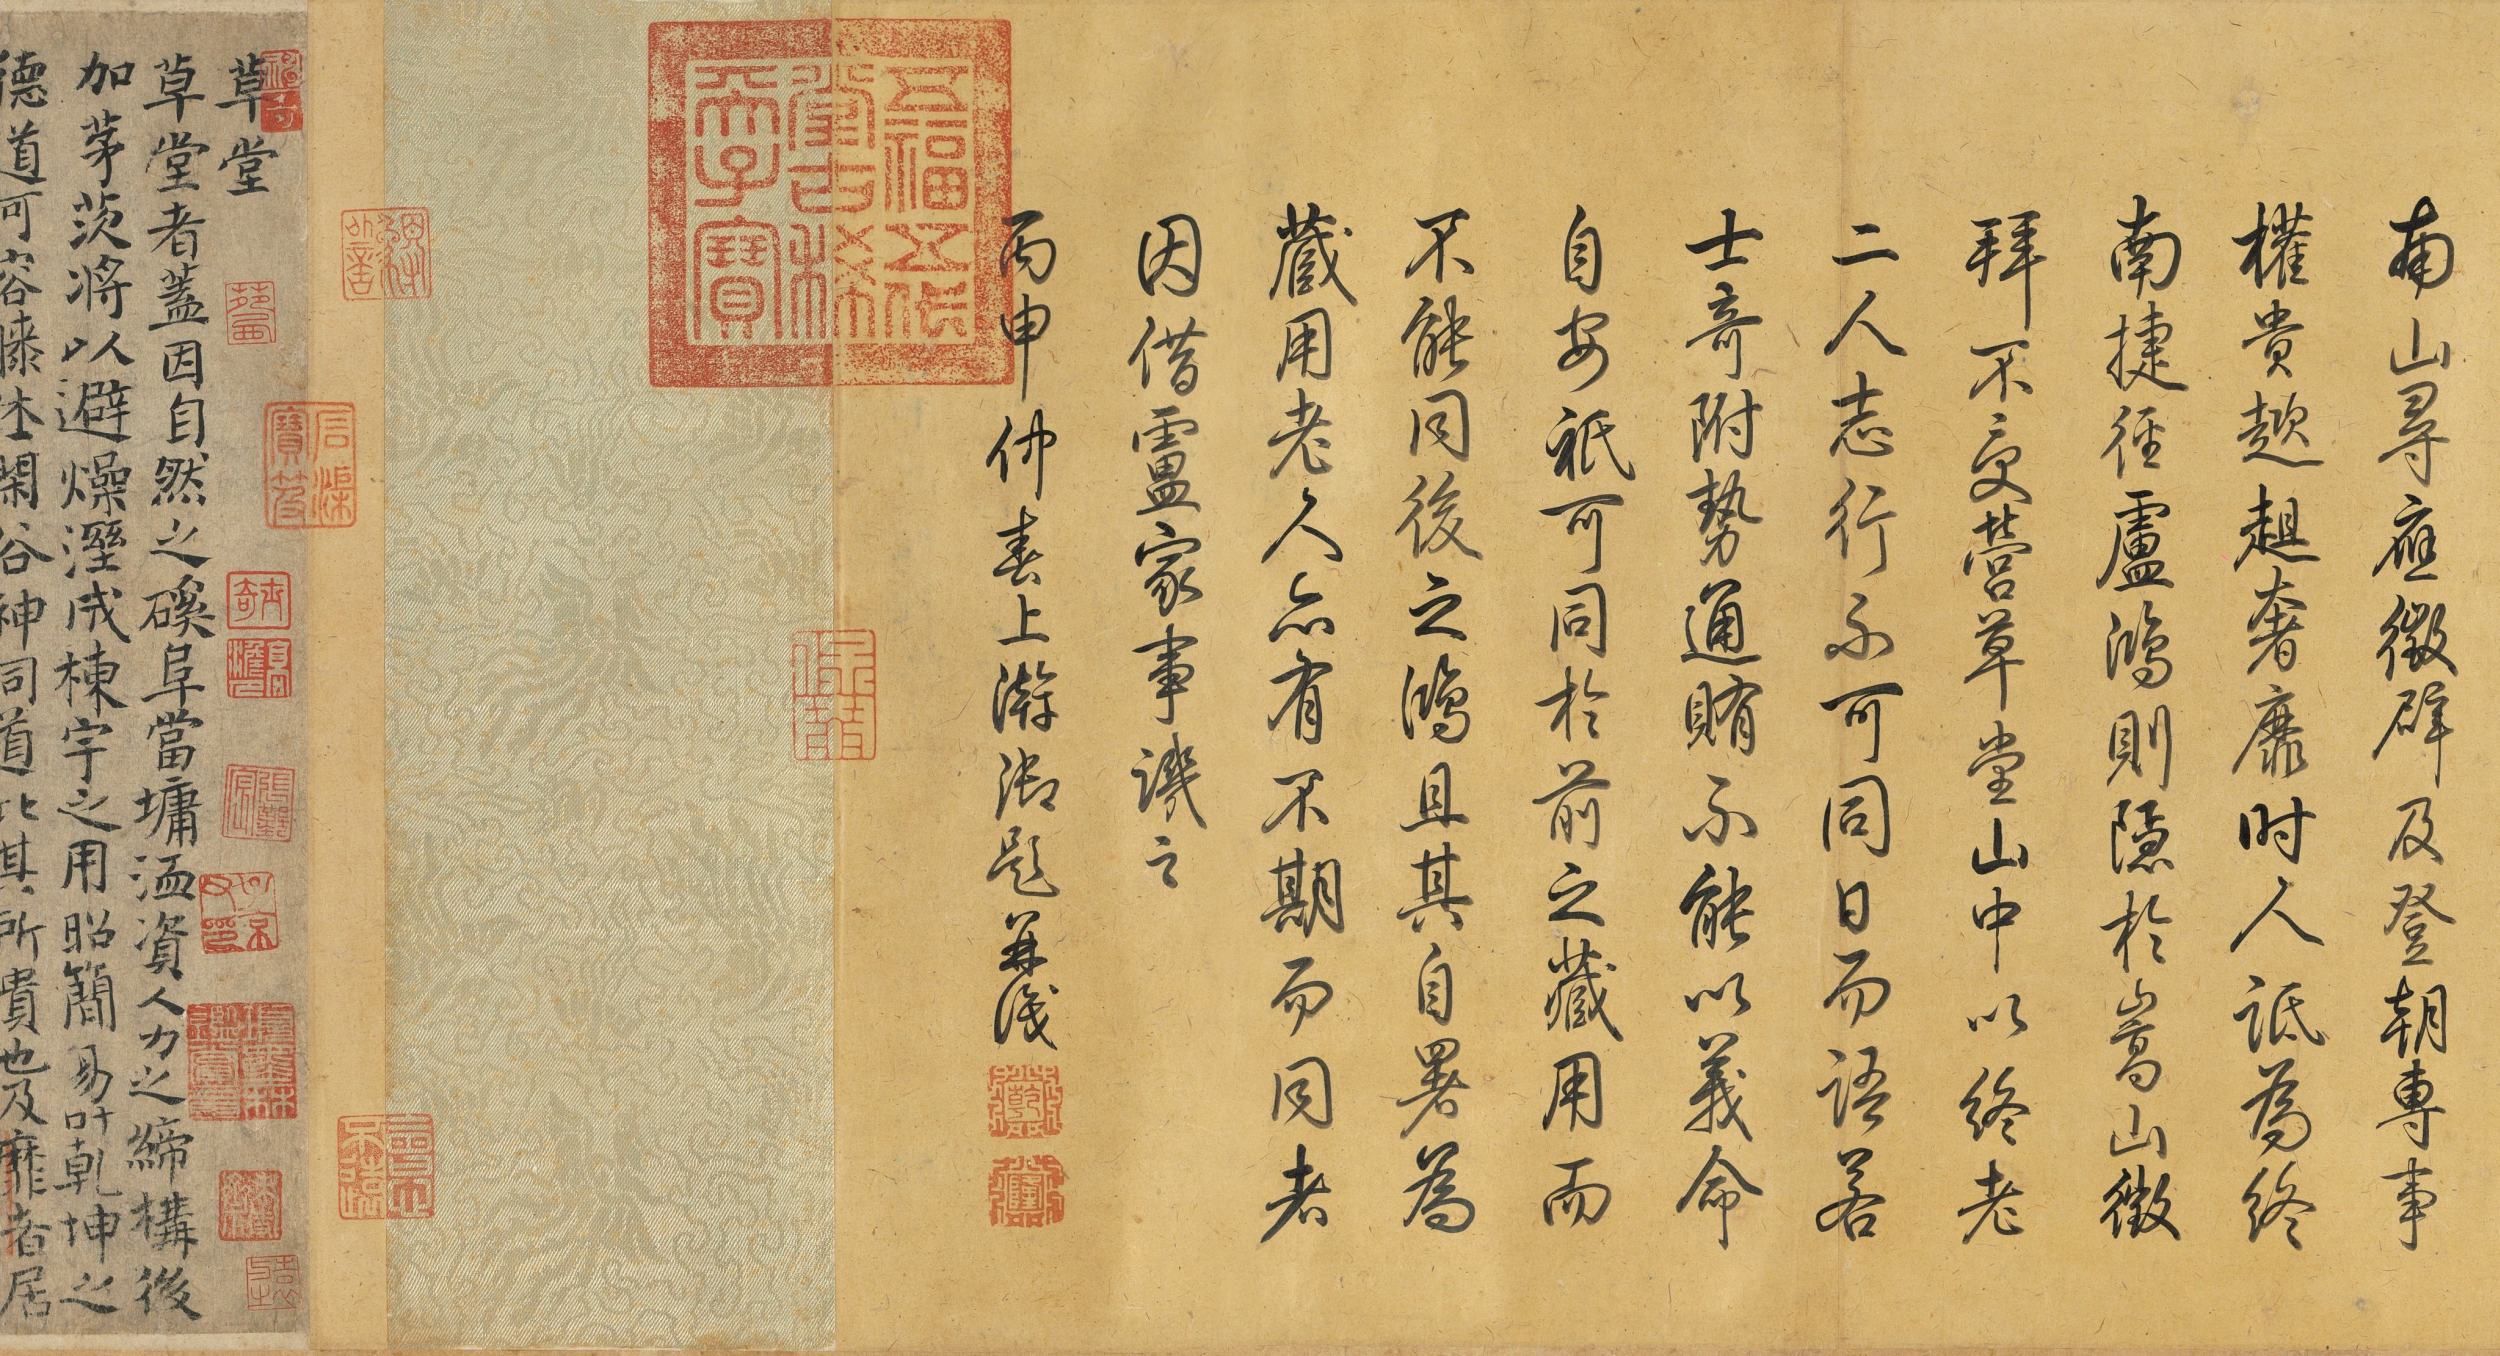 南山尋應徵辟及登朝專事
權貴趑趄奢靡时人詆為終
南捷徑盧鴻則隱於嵩山徵
拜不受營草堂山中以終老
二人志行不可同日而語若
士奇附勢通賄不能以義命
自安祇可同於前之藏用而
不能同後之鴻且其自署為
藏用老人亦有不期而同者
因借盧家事譏之
丙申仲春上澣御題并識
五福五代堂古稀天子寶
草堂
草堂者蓋因自然之磎阜當墉洫資人力之締構後
加茅茨將以避燥溼成棟宇之用昭簡易叶乾坤之
德道可容膝休閑谷神同道此其所貴也及靡者居